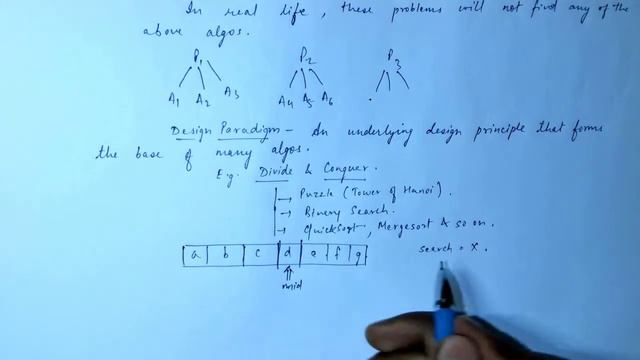 In real life, these problems will not find any of the
above algos.
P1 P2 P3
A1 A2 A3 A4 A5 A6
Design Paradigm - An underlying design principle that forms
the base of many algos.
E.g. Divide & Conquer.
→ Puzzle (Tower of Hanoi).
→ Binary Search.
→ QuickSort, Mergesort & so on.
a b c d e f g
search = x.
mid